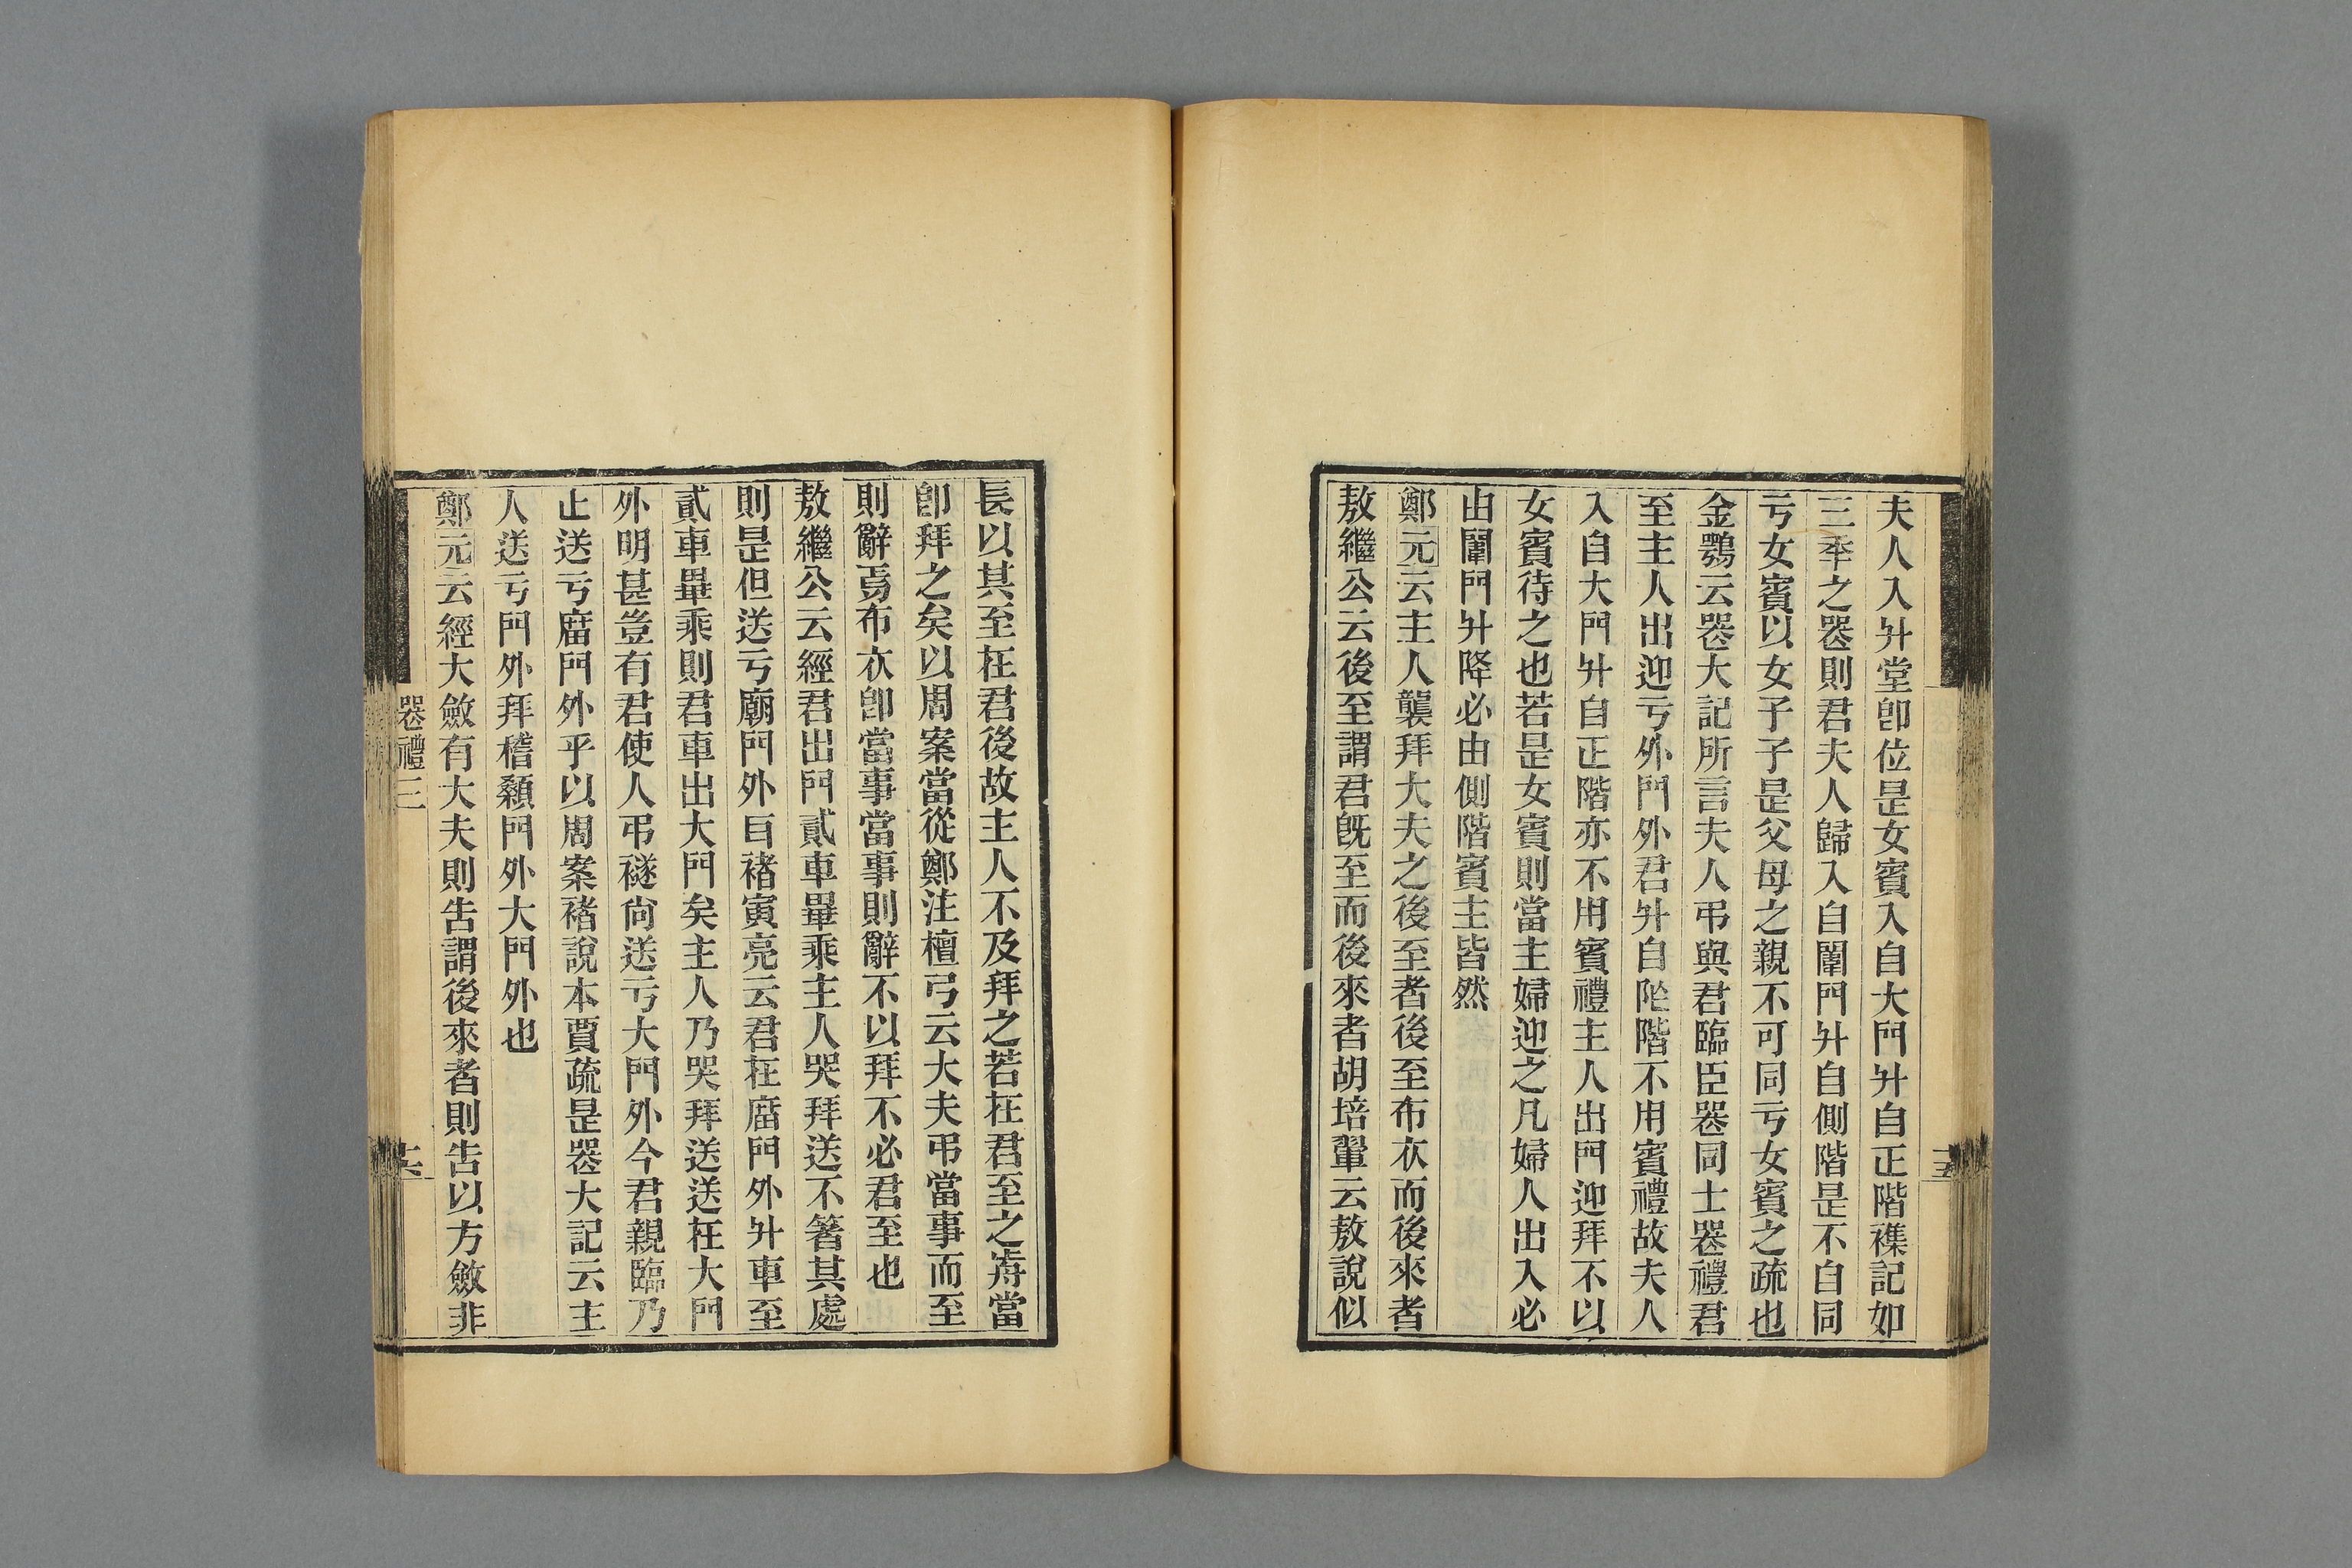 夫人入升堂卽位是女賓入自大門升自正階襍記如
三年之喪則君夫人歸入自闈門升自側階是不自同
亏女賓以女子子是父母之親不可同亏女賓之疏也
金鶚云喪大記所言夫人弔與君臨臣喪同士喪禮君
至主人出迎亏外門外君升自阼階不用賓禮故夫人
入自大門升自正階亦不用賓禮主人出門迎拜不以
女賓待之也若是女賓則當主婦迎之凡婦人出入必
由闈門升降必由側階賓主皆然
鄭元云主人襲拜大夫之後至者後至布衣而後來者
敖繼公云後至謂君旣至而後來者胡培翬云敖說似
長以其至在君後故主人不及拜之若在君至之歬當
卽拜之矣以周案當從鄭注檀弓云大夫弔當事而至
則辭焉布衣卽當事當事則辭不以拜不必君至也
敖繼公云經君出門貳車畢乘主人哭拜送不箸其處
則是但送亏廟門外㠯褚寅亮云君在廟門外升車至
貳車畢乘則君車出大門矣主人乃哭拜送送在大門
外明甚豈有君使人弔襚尙送亏大門外今君親臨乃
止送亏廟門外乎以周案褚說本賈疏是喪大記云主
人送亏門外拜稽顙門外大門外也
鄭元云經大斂有大夫則告謂後來者則告以方斂非
喪禮三
十五
十六